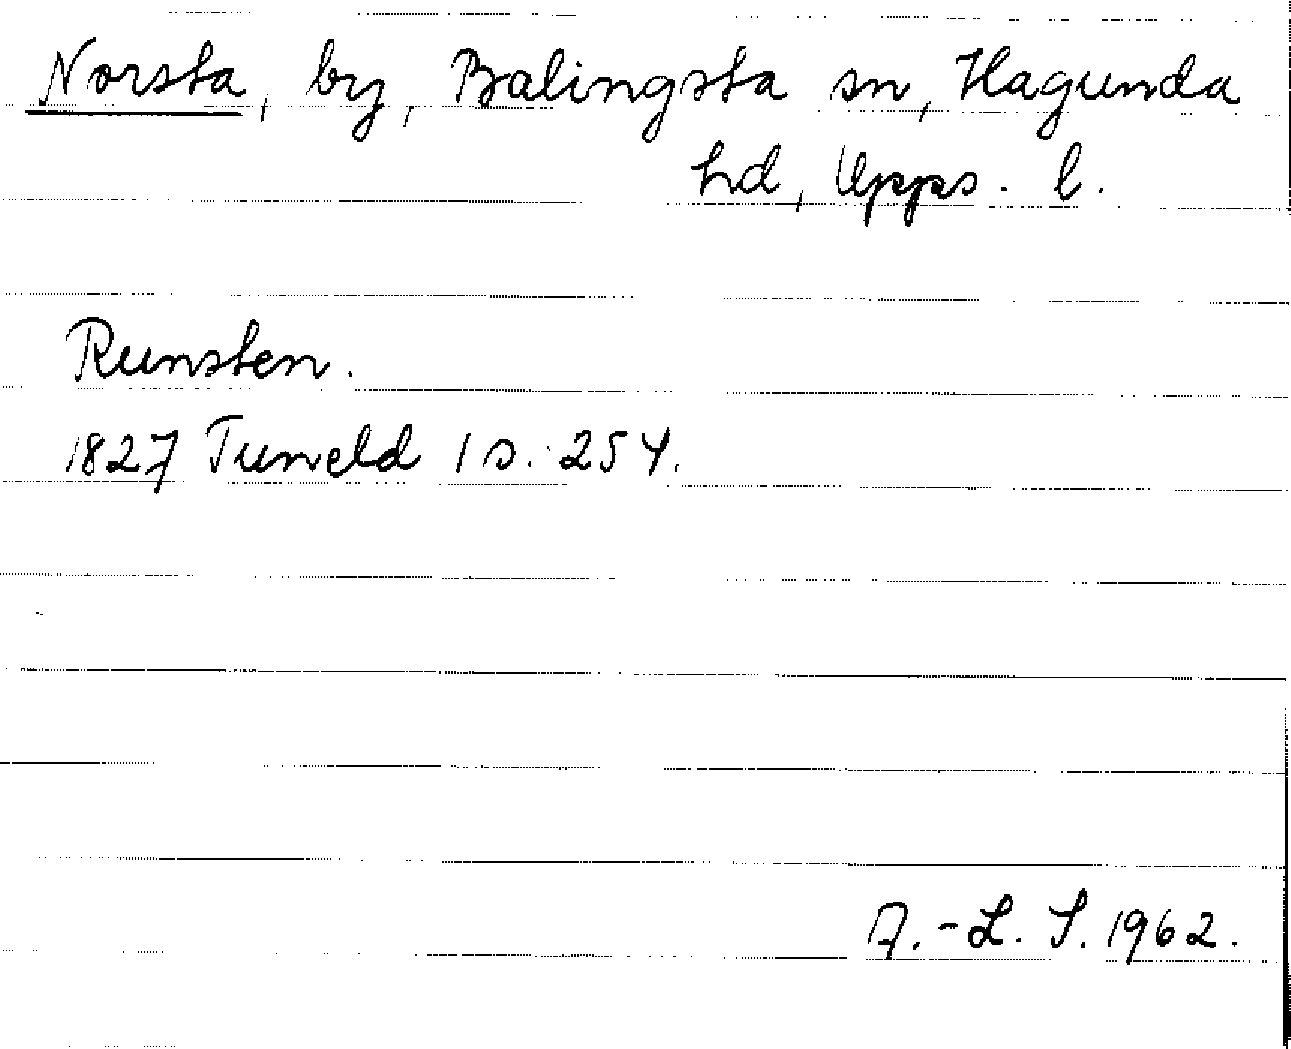 Norsta, by, Balingsta sn, Hagunda
hd, Upps. l.
Runsten.
1827 Tuneld 1 s. 254.
A.-L. S. 1962.